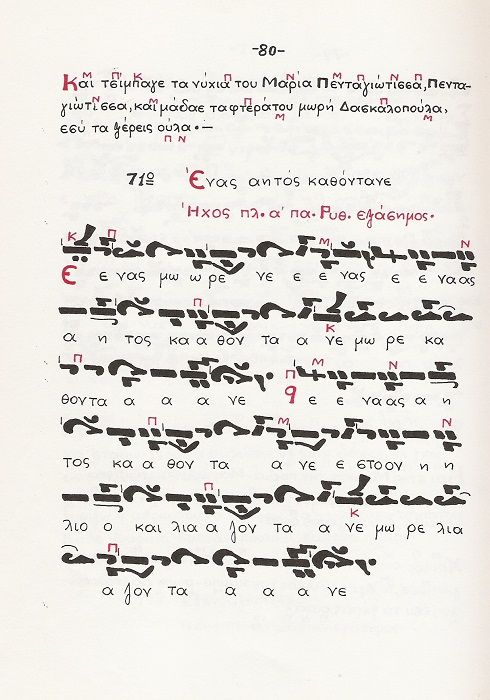 -80-
Και τσίμπαγε τα νύχια του Μαρία Πενταγιώτισσα, Πεντα-
γιώτισσα, και μάδαε τα φτερά του μωρή Δασκαλοπούλα,
εσύ τα ξέρεις ούλα.-
71ο Ένας αητός καθόντανε
Ήχος πλ. α' πα. Ρυθ. εξάσημος.
Ε ε νας μω ω ρε νε ε ε νας ε ε νας
α η τος κα α θον τα α νε μω ρε κα
θοντα α α α νε ε ε νας α η
τος κα α θον τα α νε ε στο ον η η
λιο ο και λια α ζον τα α νε μω ρε λια
α ζον τα α α α νε